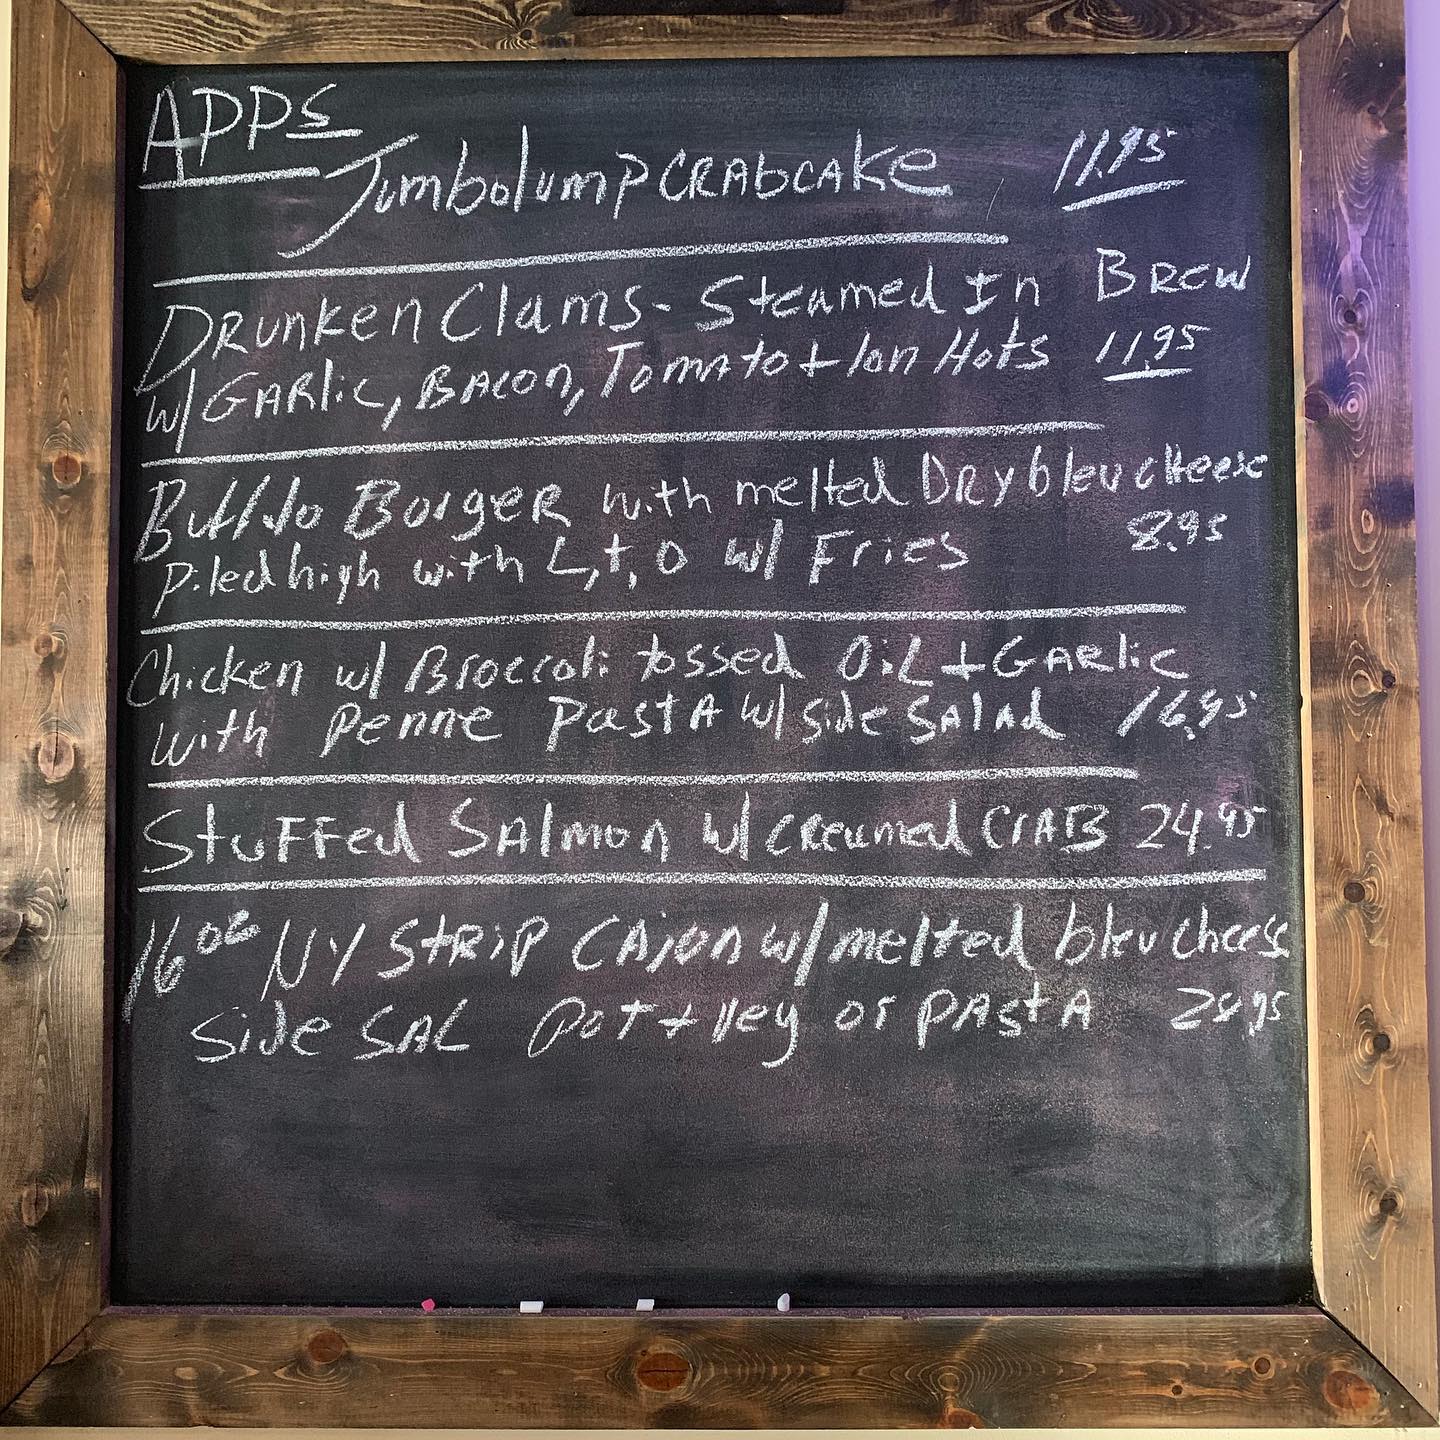 APPs
Jumbolump CRAbCAKe 11.95
DRunken Clams - Steamed In BREW
w/ GARlic, BACON, Tomato + lon Hots 11.95
Bufflo Burger with melted DRy bleu cheese
piled high with L, t, O w/ Fries 8.95
Chicken w/ Broccoli tossed OiL + GARlic
with Penne PastA w/ side SAlAd 16.95
StuFFed SAlmon w/ CReamed CrAB 24.95
16 oz NY StRiP CAjun w/ melted bleu cheese
Side SAL Pot + Vey or PAstA